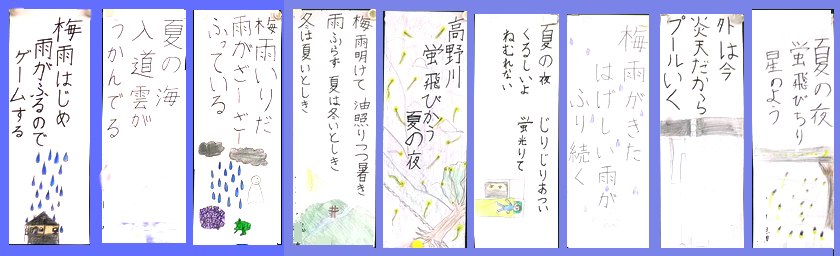 夏の夜
蛍飛びちり
星のよう
外は今
炎天だから
プールいく
梅雨がきた
はげしい雨が
ふり続く
夏の夜
くるしいよ
ねむれない
じりじりあつい
蛍光りて
高野川
蛍飛びかう
夏の夜
梅雨明けて 油照りつつ暑き
雨ふらず 夏は冬いとしき
冬は夏いとしき
梅雨いりだ
雨がざーざー
ふっている
夏の海
入道雲が
うかんでる
梅雨はじめ
雨がふるので
ゲームする